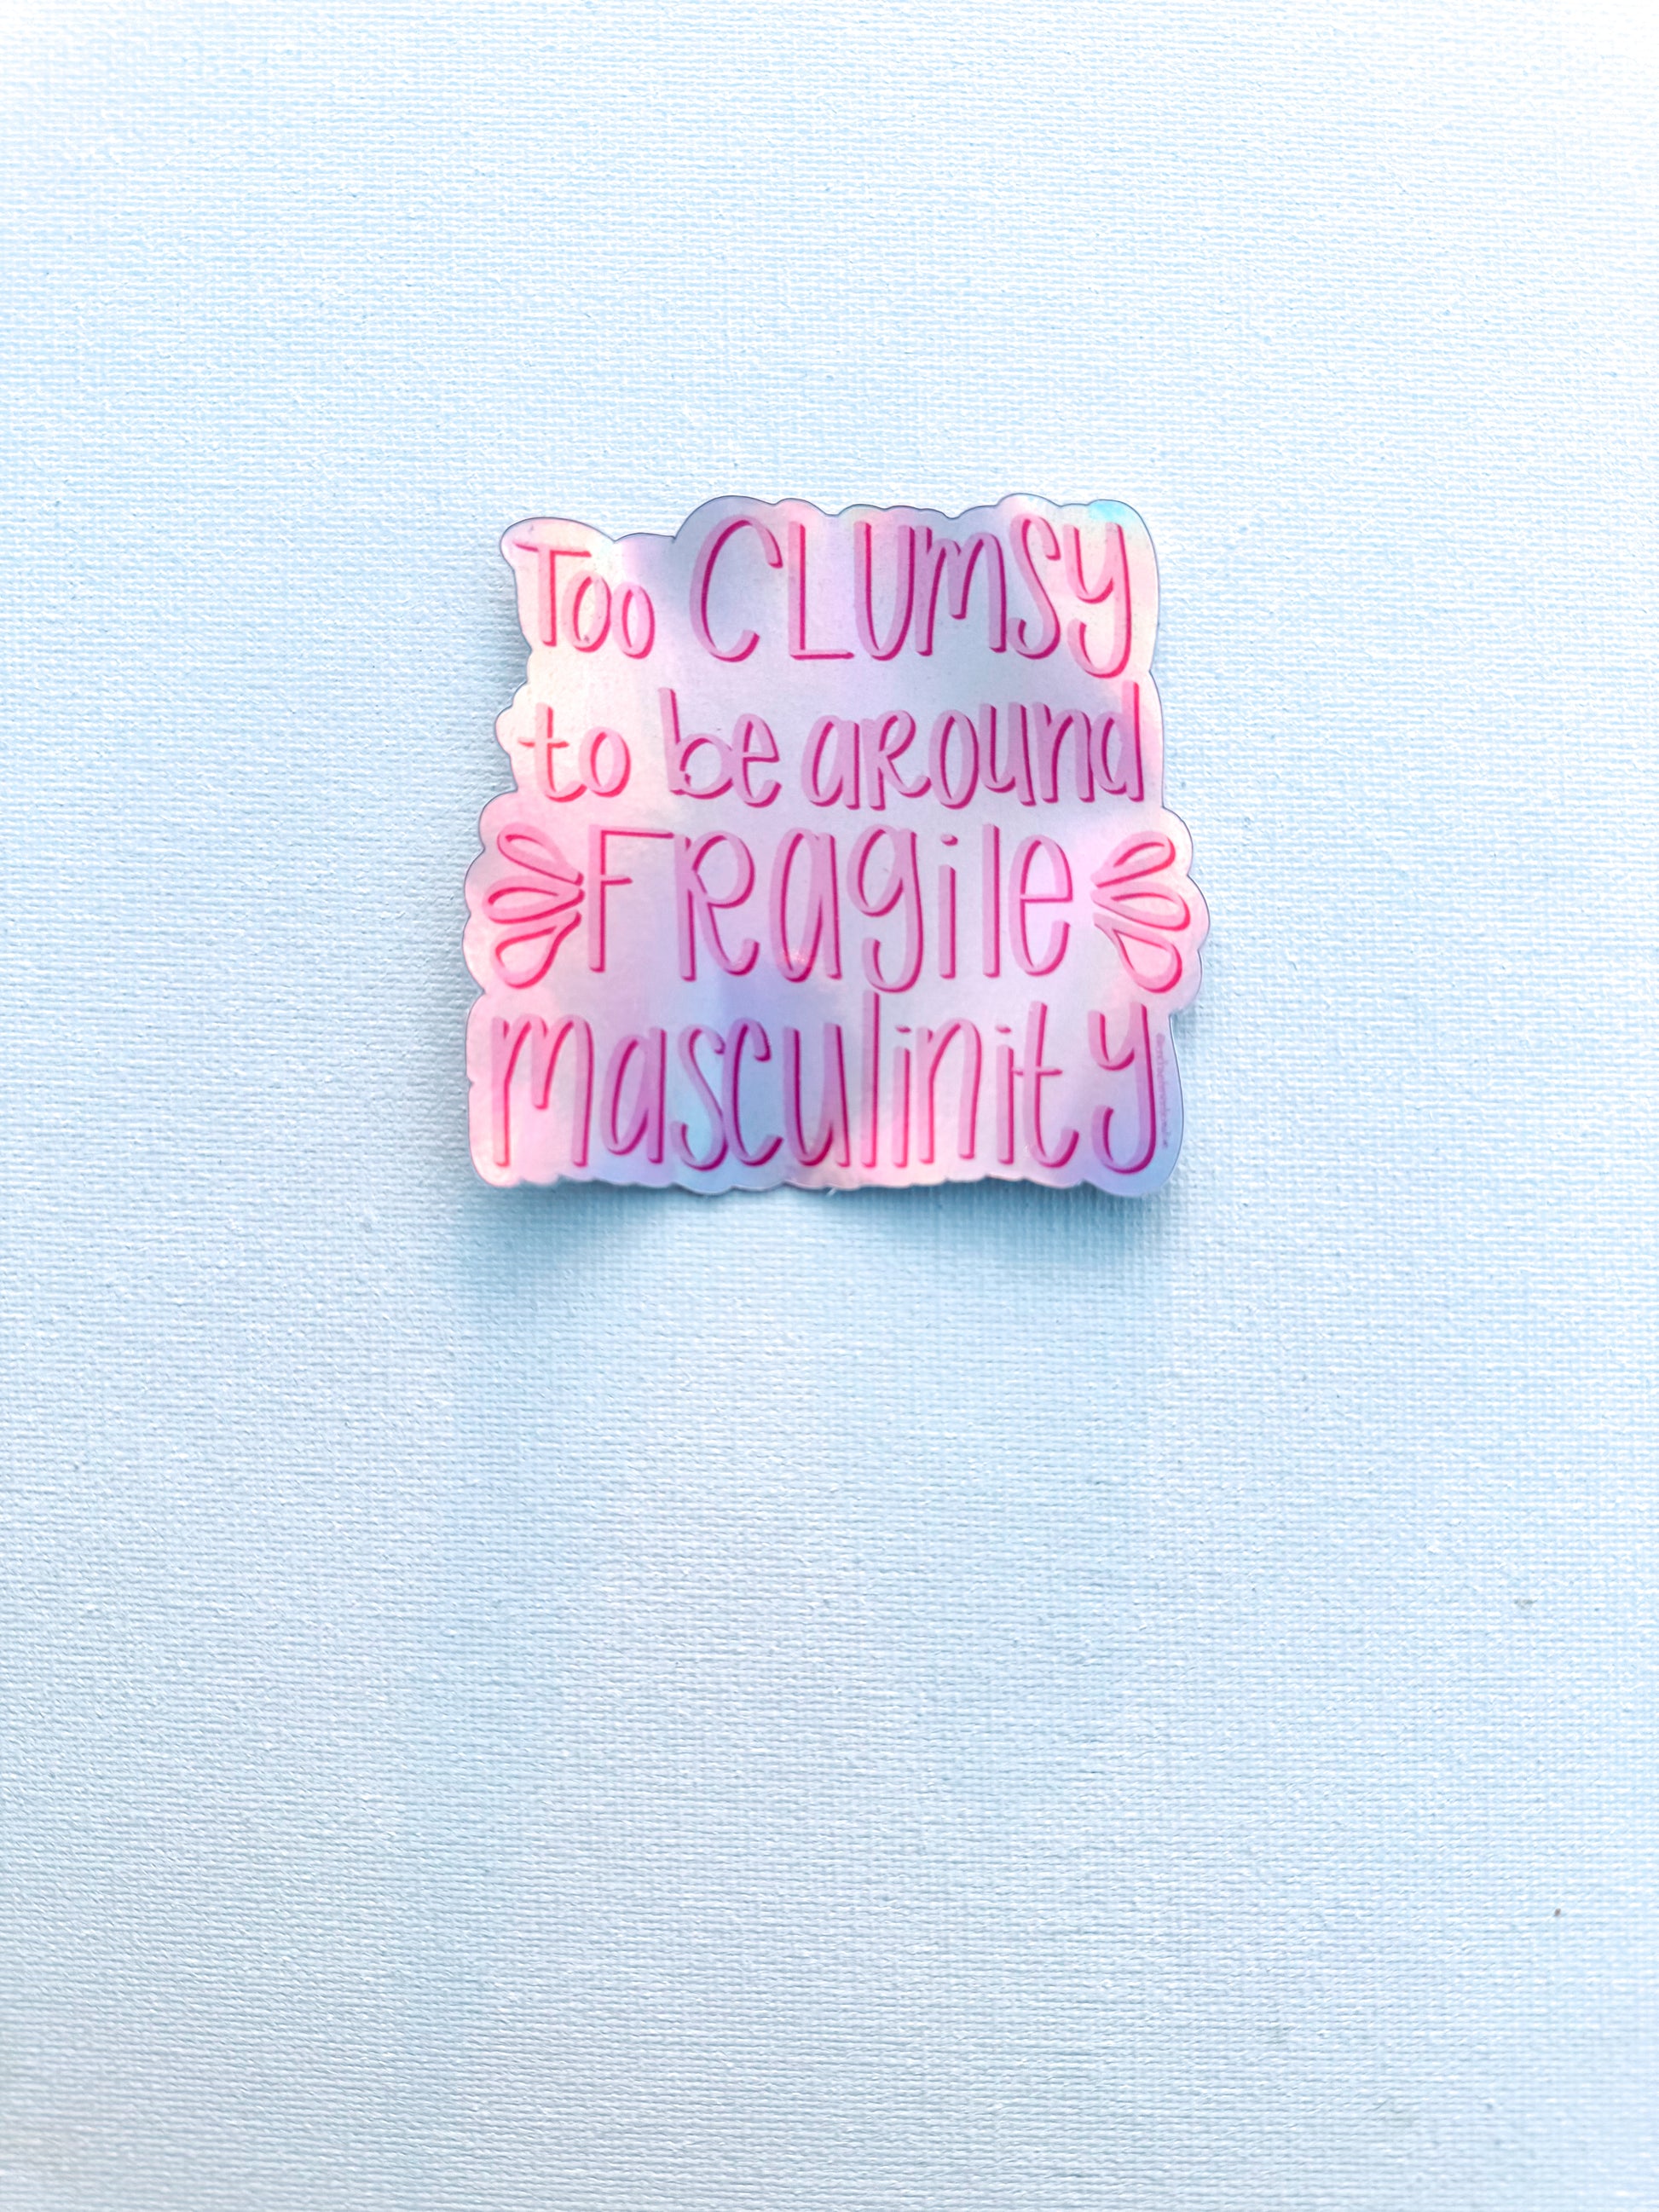 Too CLUMSY
to be aRound
FRagile
masculinity